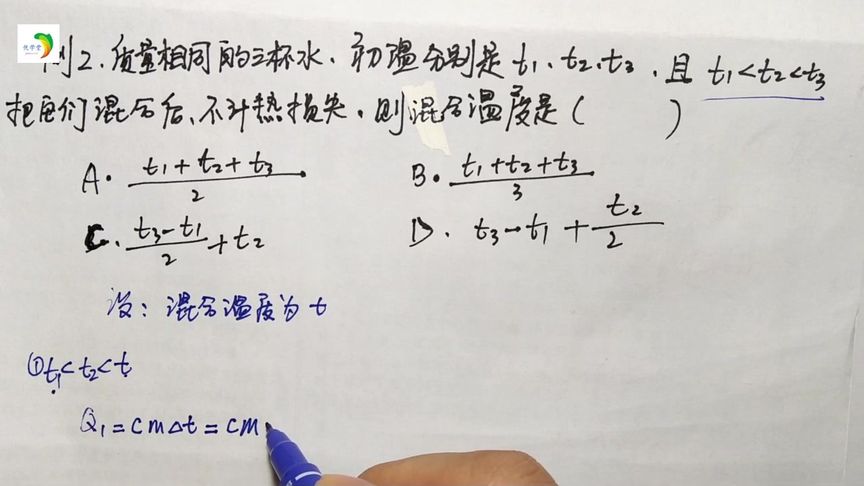 优学堂
例2.质量相同的三杯水.初温分别是t₁、t₂、t₃.且t₁<t₂<t₃
把它们混合后、不计热损失.则混合温度是( )
A. (t₁+t₂+t₃)/2 B. (t₁+t₂+t₃)/3
C. (t₃-t₁)/2+t₂ D. t₃-t₁+t₂/2
设:混合温度为t
①t₁<t₂<t
Q₁=cm△t=cm